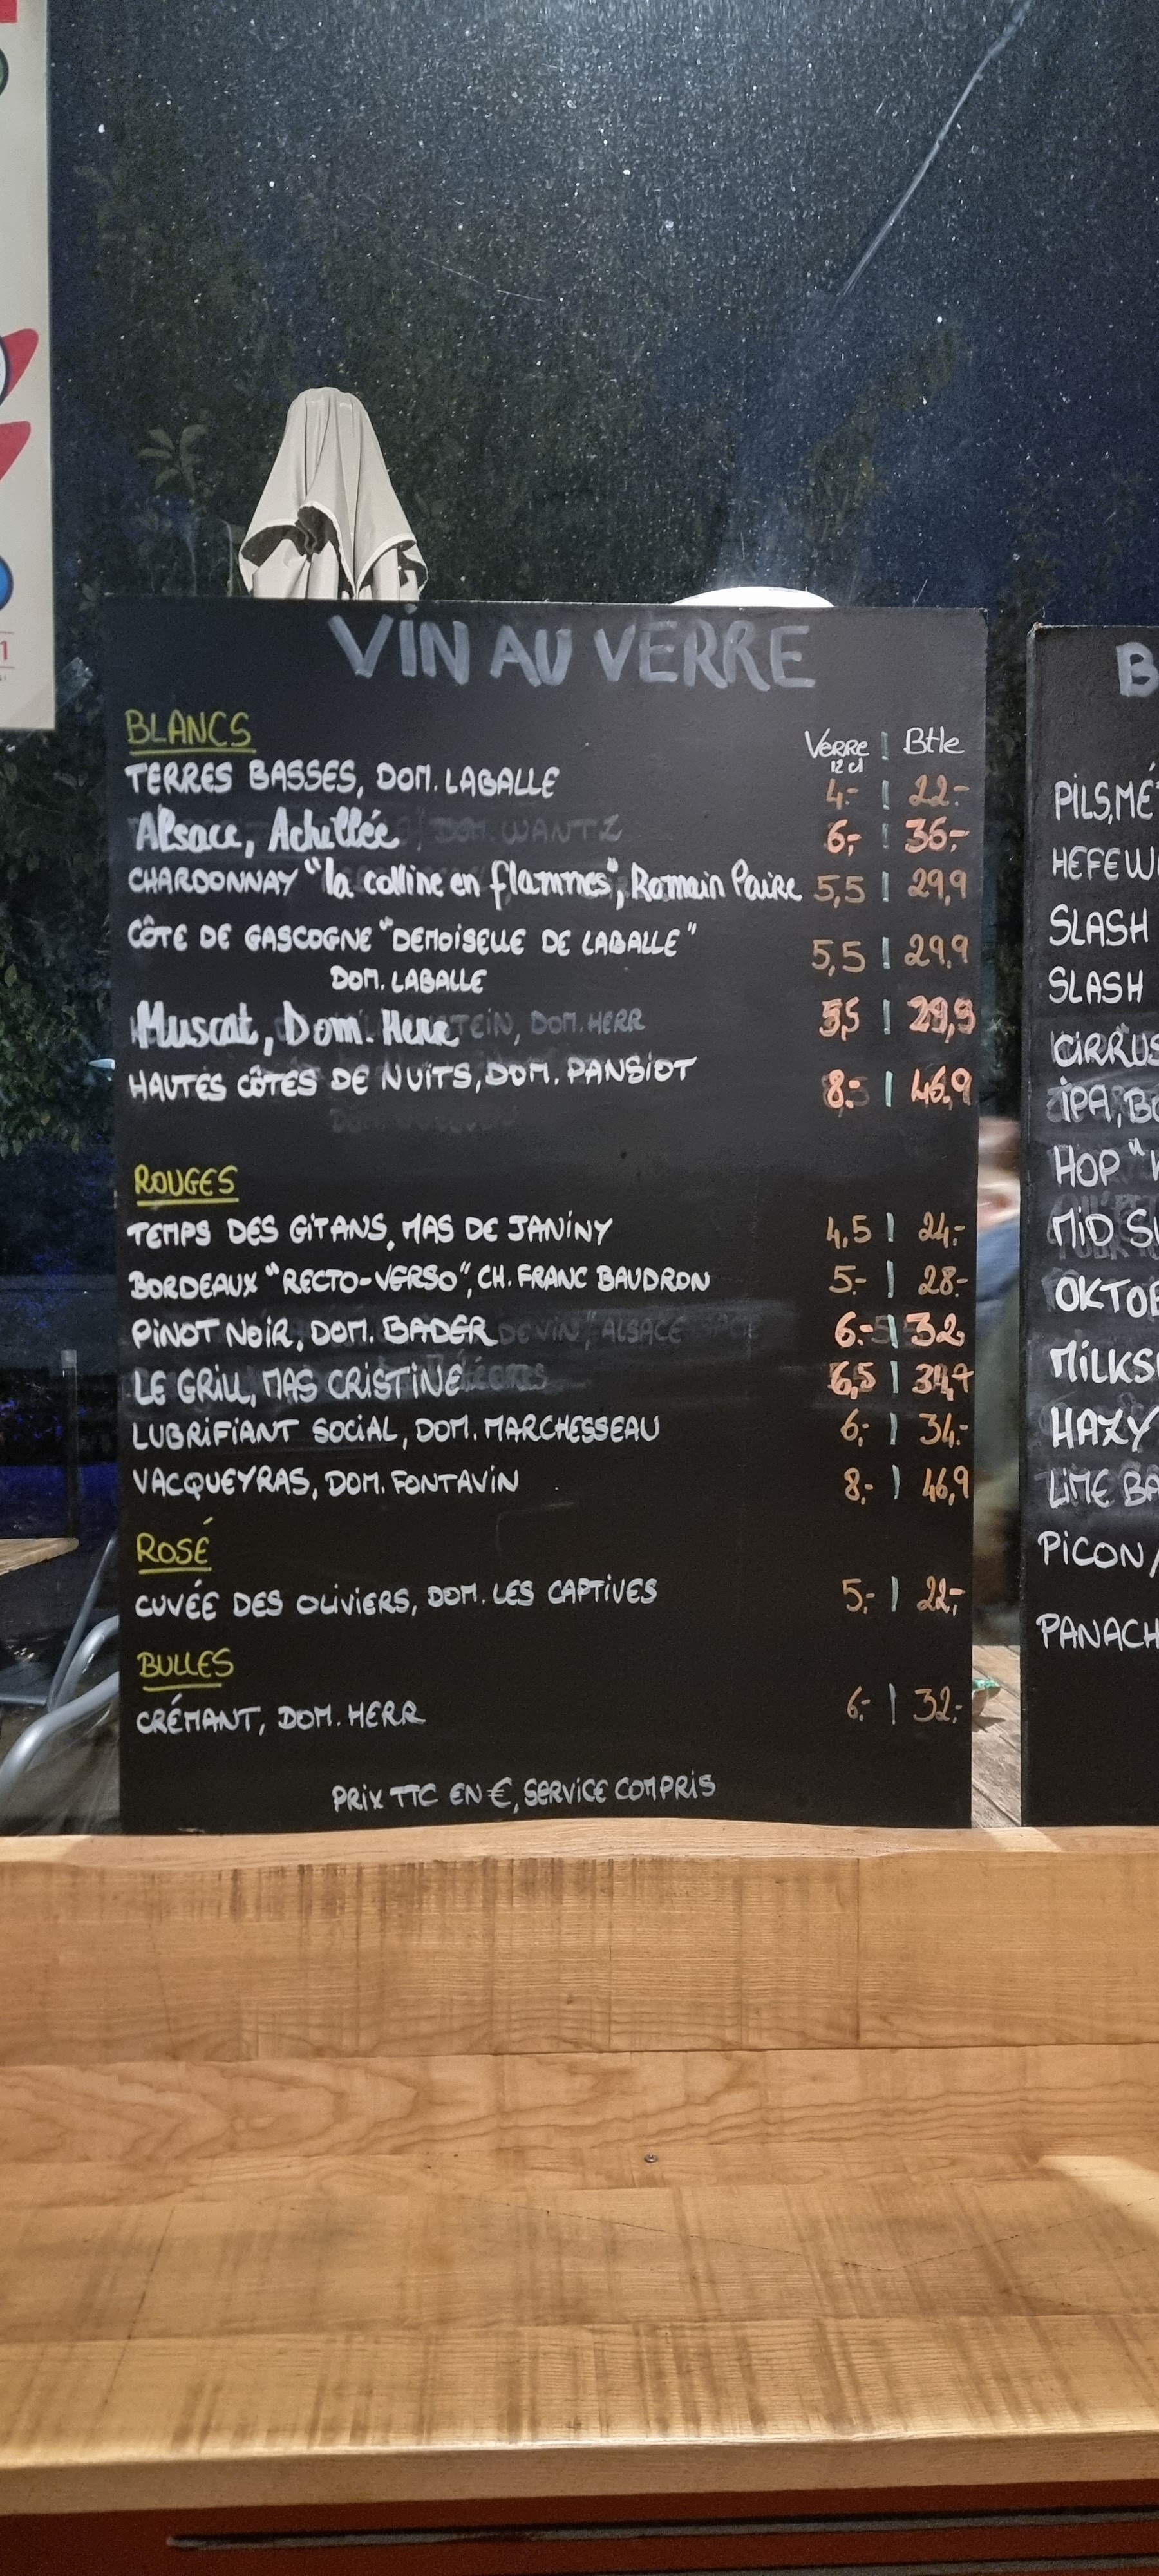 VIN AU VERRE
BLANCS
Verre | Btle
12 cl
TERRES BASSES, DOM. LABALLE 4.- | 22.-
Alsace, Achillée 6,- | 36,-
CHARDONNAY "la colline en flammes", Romain Paire 5,5 | 29,9
CÔTE DE GASCOGNE "DEMOISELLE DE LABALLE" 5,5 | 29,9
DOM. LABALLE
Muscat, Dom. Herr 5,5 | 29,9
HAUTES CÔTES DE NUITS, DOM. PANSIOT 8.- | 46,9
ROUGES
TEMPS DES GITANS, MAS DE JANINY 4,5 | 24,-
BORDEAUX "RECTO-VERSO", CH. FRANC BAUDRON 5.- | 28.-
PINOT NOIR, DOM. BADER 6.- | 32,
LE GRILL, MAS CRISTINE 6,5 |
LUBRIFIANT SOCIAL, DOM. MARCHESSEAU 6,- | 34.-
VACQUEYRAS, DOM. FONTAVIN 8,- | 46,9
ROSÉ
CUVÉE DES OLIVIERS, DOM. LES CAPTIVES 5,- | 22,-
BULLES
CRÉMANT, DOM. HERR 6.- | 32,-
PRIX TTC EN €, SERVICE COMPRIS
B
PILS, MÉ
HEFEW
SLASH
SLASH
CIRRUS
IPA, B
HOP "
MID S
OKTOB
MILKS
HAZY
LIME BA
PICON/
PANACH
1